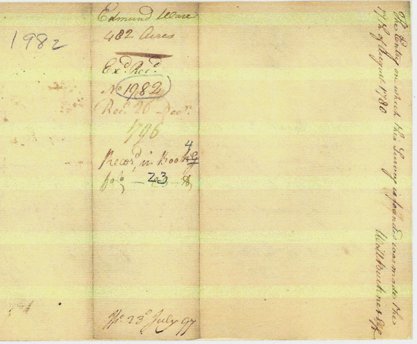 1982
Edmund Ware
482 Acres
Exd Recd
No 1982
Recd 20 Decr
1796
Recod in Book 4
fol. 23
23d July 97
The Entry on which this Survey is founded was made the
17th of August 1780